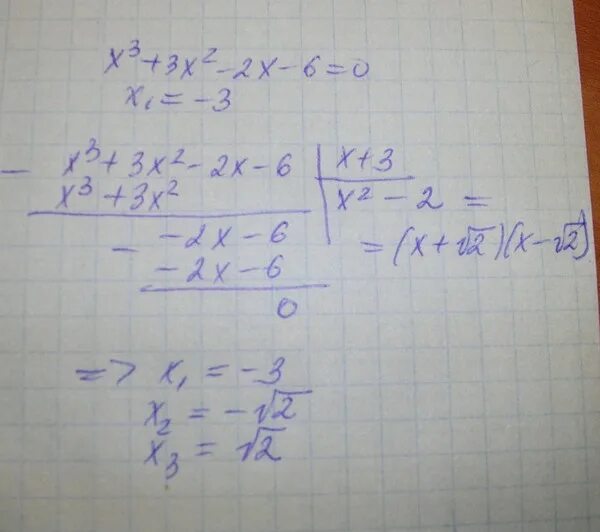 x³+3x²-2x-6=0
x₁=-3
- x³+3x²-2x-6 | x+3
x³+3x² | x²-2 =
- -2x-6 =(x+√2)(x-√2)
-2x-6
0
=> x₁=-3
x₂=-√2
x₃=√2